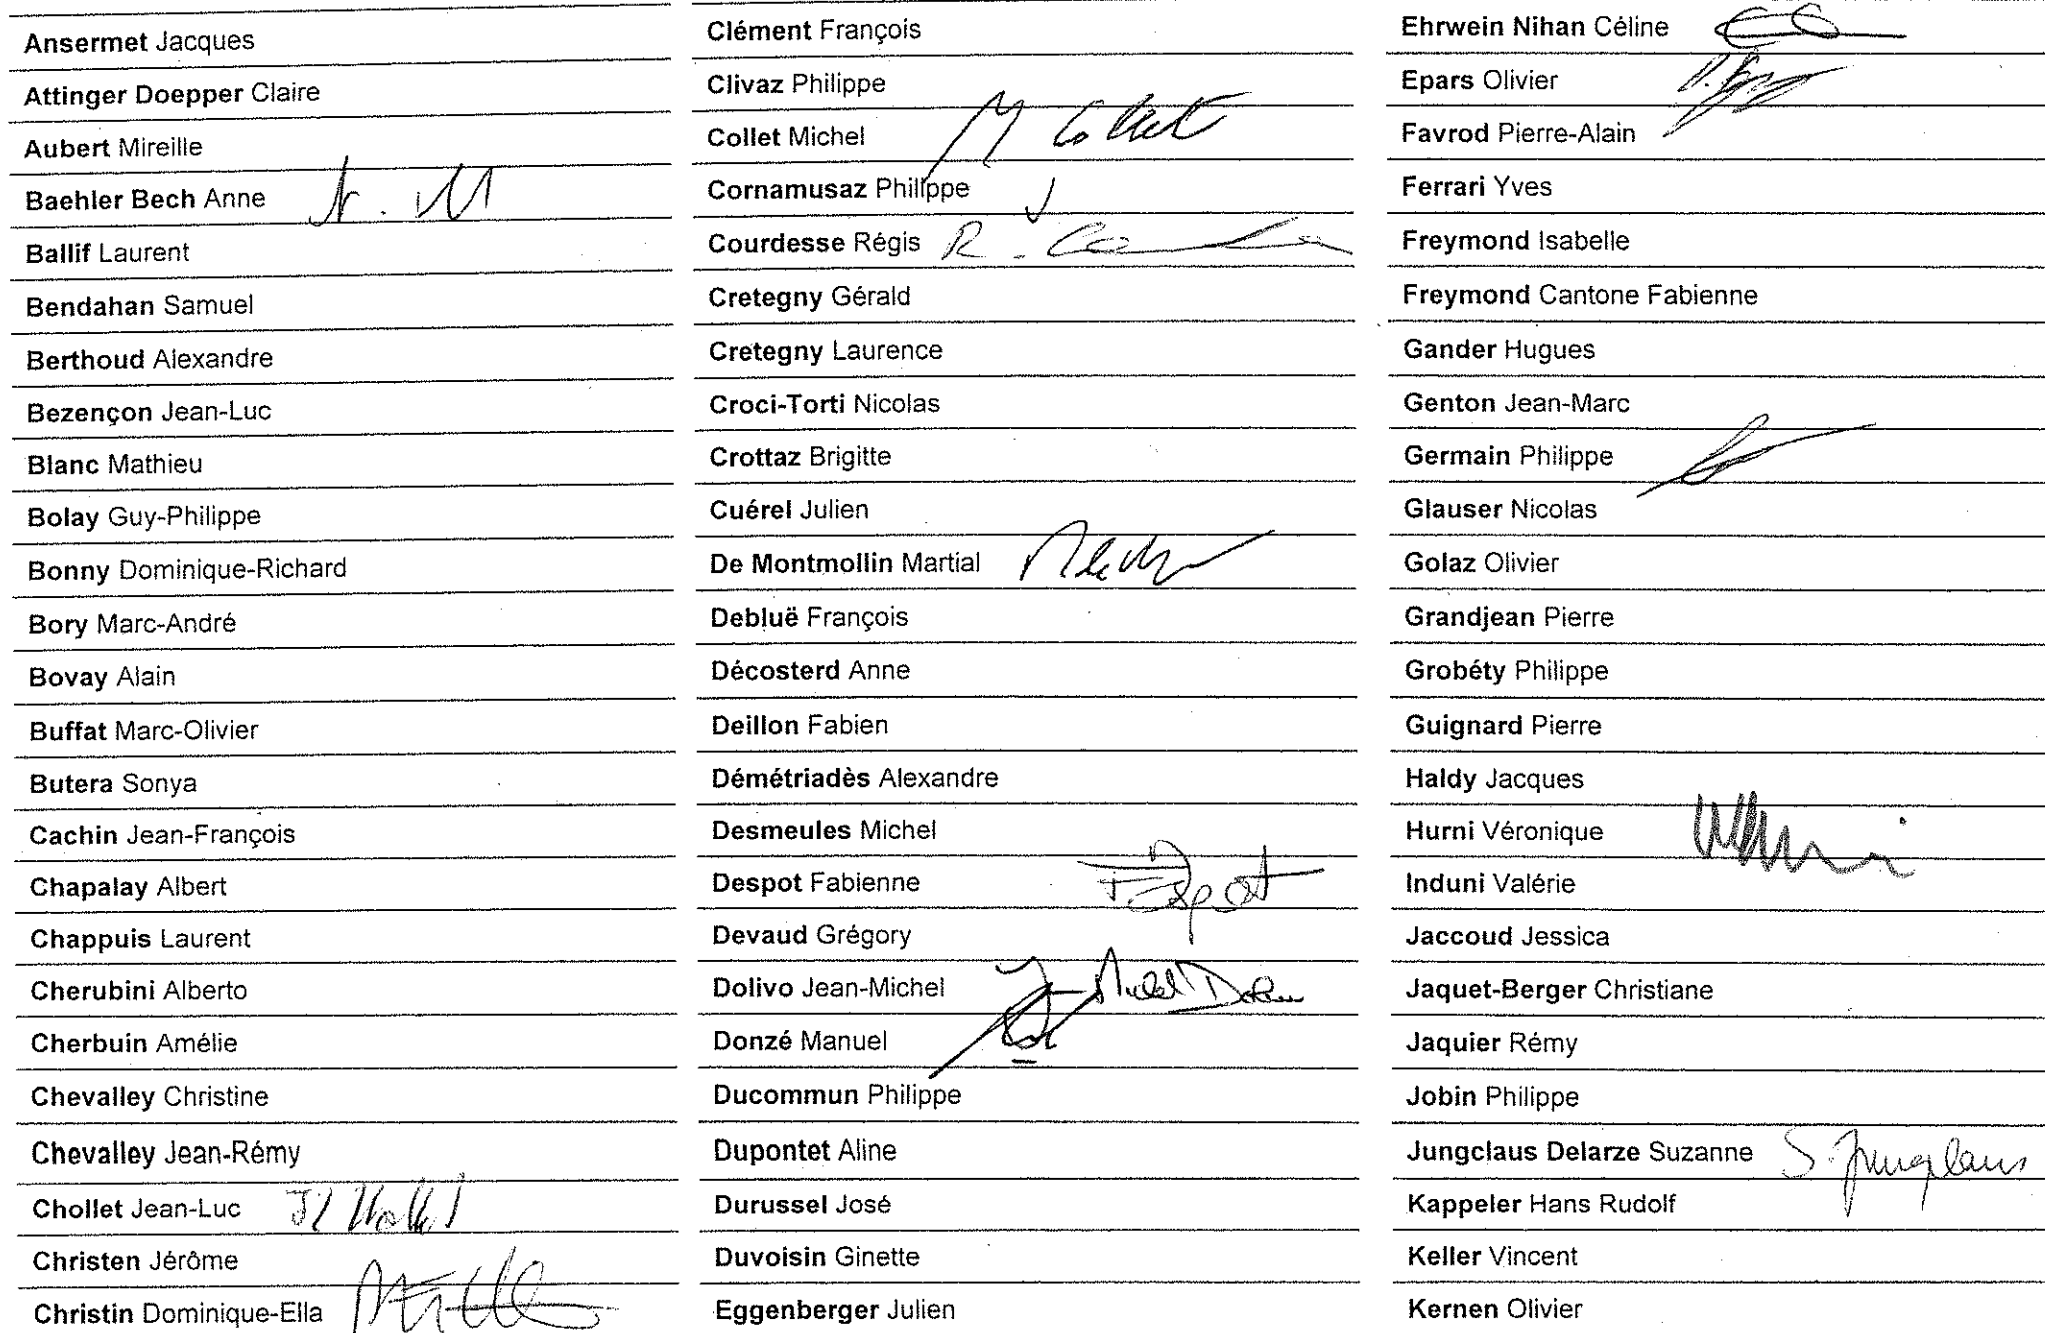 Ansermet Jacques
Attinger Doepper Claire
Aubert Mireille
Baehler Bech Anne
Ballif Laurent
Bendahan Samuel
Berthoud Alexandre
Bezençon Jean-Luc
Blanc Mathieu
Bolay Guy-Philippe
Bonny Dominique-Richard
Bory Marc-André
Bovay Alain
Buffat Marc-Olivier
Butera Sonya
Cachin Jean-François
Chapalay Albert
Chappuis Laurent
Cherubini Alberto
Cherbuin Amélie
Chevalley Christine
Chevalley Jean-Rémy
Chollet Jean-Luc
Christen Jérôme
Christin Dominique-Ella
Clément François
Clivaz Philippe
Collet Michel M Collet
Cornamusaz Philippe
Courdesse Régis R.
Cretegny Gérald
Cretegny Laurence
Croci-Torti Nicolas
Crottaz Brigitte
Cuérel Julien
De Montmollin Martial
Debluë François
Décosterd Anne
Deillon Fabien
Démétriadès Alexandre
Desmeules Michel
Despot Fabienne
Devaud Grégory
Dolivo Jean-Michel
Donzé Manuel
Ducommun Philippe
Dupontet Aline
Durussel José
Duvoisin Ginette
Eggenberger Julien
Ehrwein Nihan Céline
Epars Olivier
Favrod Pierre-Alain
Ferrari Yves
Freymond Isabelle
Freymond Cantone Fabienne
Gander Hugues
Genton Jean-Marc
Germain Philippe
Glauser Nicolas
Golaz Olivier
Grandjean Pierre
Grobéty Philippe
Guignard Pierre
Haldy Jacques
Hurni Véronique
Induni Valérie
Jaccoud Jessica
Jaquet-Berger Christiane
Jaquier Rémy
Jobin Philippe
Jungclaus Delarze Suzanne S. Jungclaus
Kappeler Hans Rudolf
Keller Vincent
Kernen Olivier